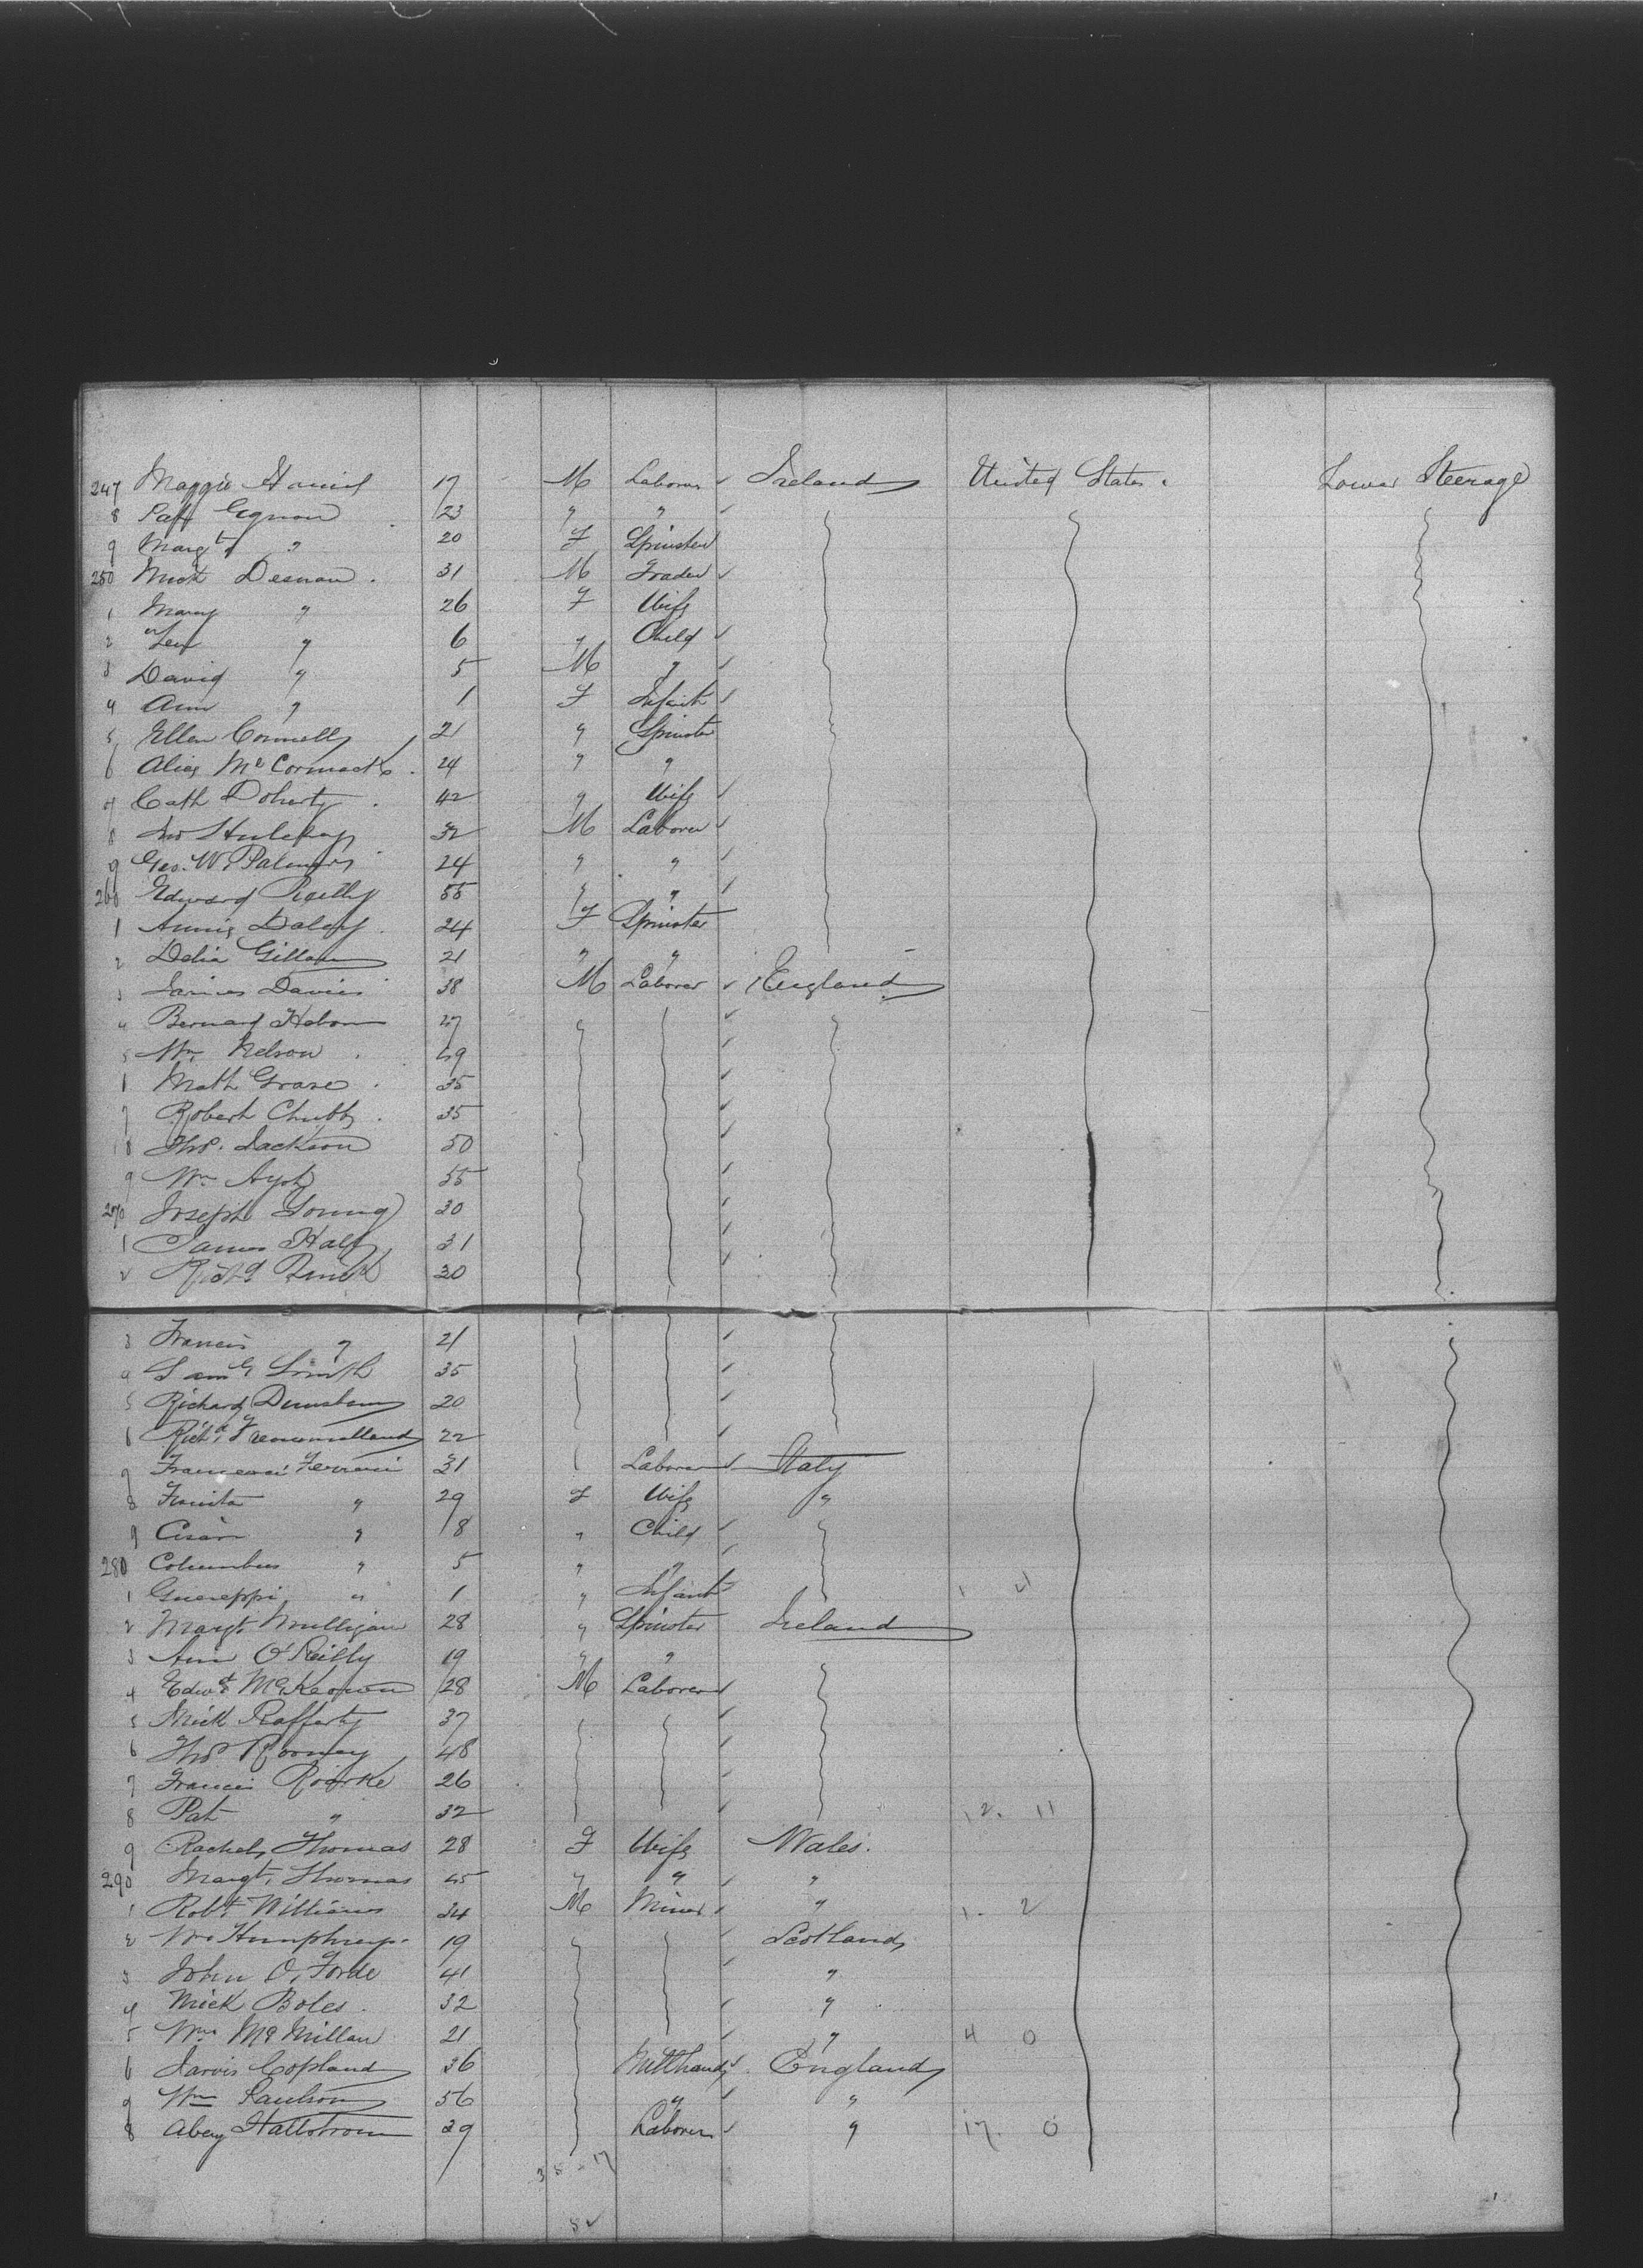 247 Maggie 17 M Laborer Ireland United States. Lower Steerage
8 23 " "
9 Margt " 20 F Spinster
250 Mick Deenan 31 M Trader
1 Mary " 26 F Wife
2 " 6 " Child
3 David " 5 M "
4 Ann " 1 F Infant
5 Ellen Connelly 21 " Spinster
6 Alice McCormack 24 " "
7 Cath Doherty 42 " Wife
8 32 M Laborer
9 Geo. W. Palmer 24 " "
260 Edward Reilly 55 " "
1 Annie Daley 24 F Spinster
2 Delia Gillan 21 " "
3 James Davies 38 M Laborer England
4 Bernard 27
5 Wm Nelson 49
Math Grase 35
7 Robert Chubb 35
8 Thos. Jackson 50
9 Wm 55
270 Joseph Young 30
1 James Hall 31
2 Richd 30
3 Francis " 21
4 Saml Smith 35
5 Richard 20
6 Richd 22
7 Ferrari 31 Laborer Italy
8 " 29 F Wife "
9 " 8 " Child
280 Columbus " 5 " "
1 " 1 " Infant
2 Margt Mulligan 28 " Spinster Ireland
3 Ann O'Reilly 19 " "
4 Edwd McKeown 28 M Laborer
5 Mick Rafferty 37
6 Thos Rooney 48
7 Francis Roorke 26
8 Pat " 32 12. 11
9 Rachel Thomas 28 F Wife Wales.
290 Margt Thomas 45 " " "
1 Robt Williams 34 M Miner " 1. 2
2 Wm Humphreys 19 Scotland
3 John O. Forde 41 "
4 Mick Boles 32 "
5 Wm McMillan 21 " 4 0
6 Jarvis Copland 36 Millhand England
7 Wm Paulson 56 " "
8 Hallstrom 39 Laborer " 17. 0
35 - 17
52